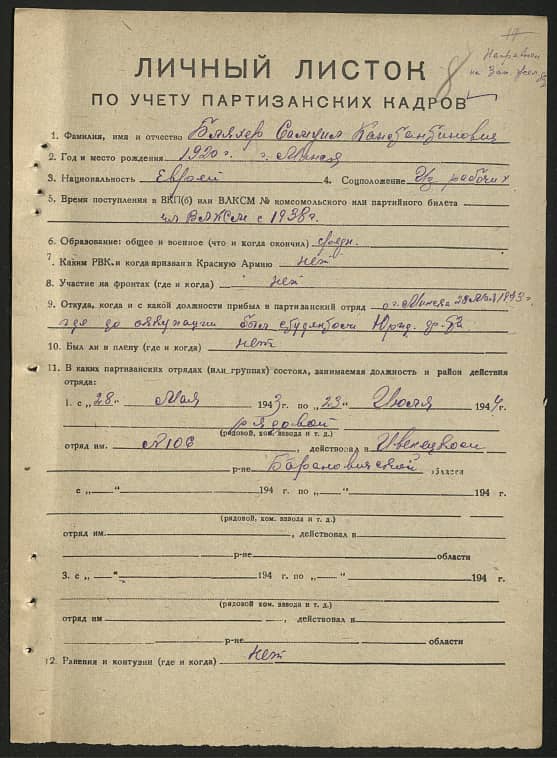 Направлен
на Зап.
8
ЛИЧНЫЙ ЛИСТОК
ПО УЧЕТУ ПАРТИЗАНСКИХ КАДРОВ
1. Фамилия, имя и отчество Бляхер Самуил Константинович
2. Год и место рождения 1920 г. г. Минск
3. Национальность Еврей 4. Соцположение Из рабочих
5. Время поступления в ВКП(б) или ВЛКСМ № комсомольского или партийного билета
чл ВЛКСМ с 1938г.
6. Образование: общее и военное (что и когда окончил) средн.
7. Каким РВК. и когда призван в Красную Армию нет
8. Участие на фронтах (где и когда) нет
9. Откуда, когда и с какой должности прибыл в партизанский отряд г. Минска 28 мая 1943 г.
где до оккупации был студентом Юрид.
10. Был ли в плену (где и когда) нет
11. В каких партизанских отрядах (или группах) состоял, занимаемая должность и район действия
отряда:
1. с „28" Мая 1943г. по „23" Июля 1944г.
рядовой
(рядовой, ком. взвода и т. д.)
отряд им. N 106, действовал в Ивенецком
р-не Барановичской области
с „ — " 194 г. по „ — " 194 г.
(рядовой, ком. взвода и т. д.)
отряд им. , действовал в
р-не области
3. с „ — " 194 г. по „ — " 194 г.
(рядовой, ком. взвода и т. д.)
отряд им , действовал в
р-не области
12. Ранения и контузии (где и когда) нет